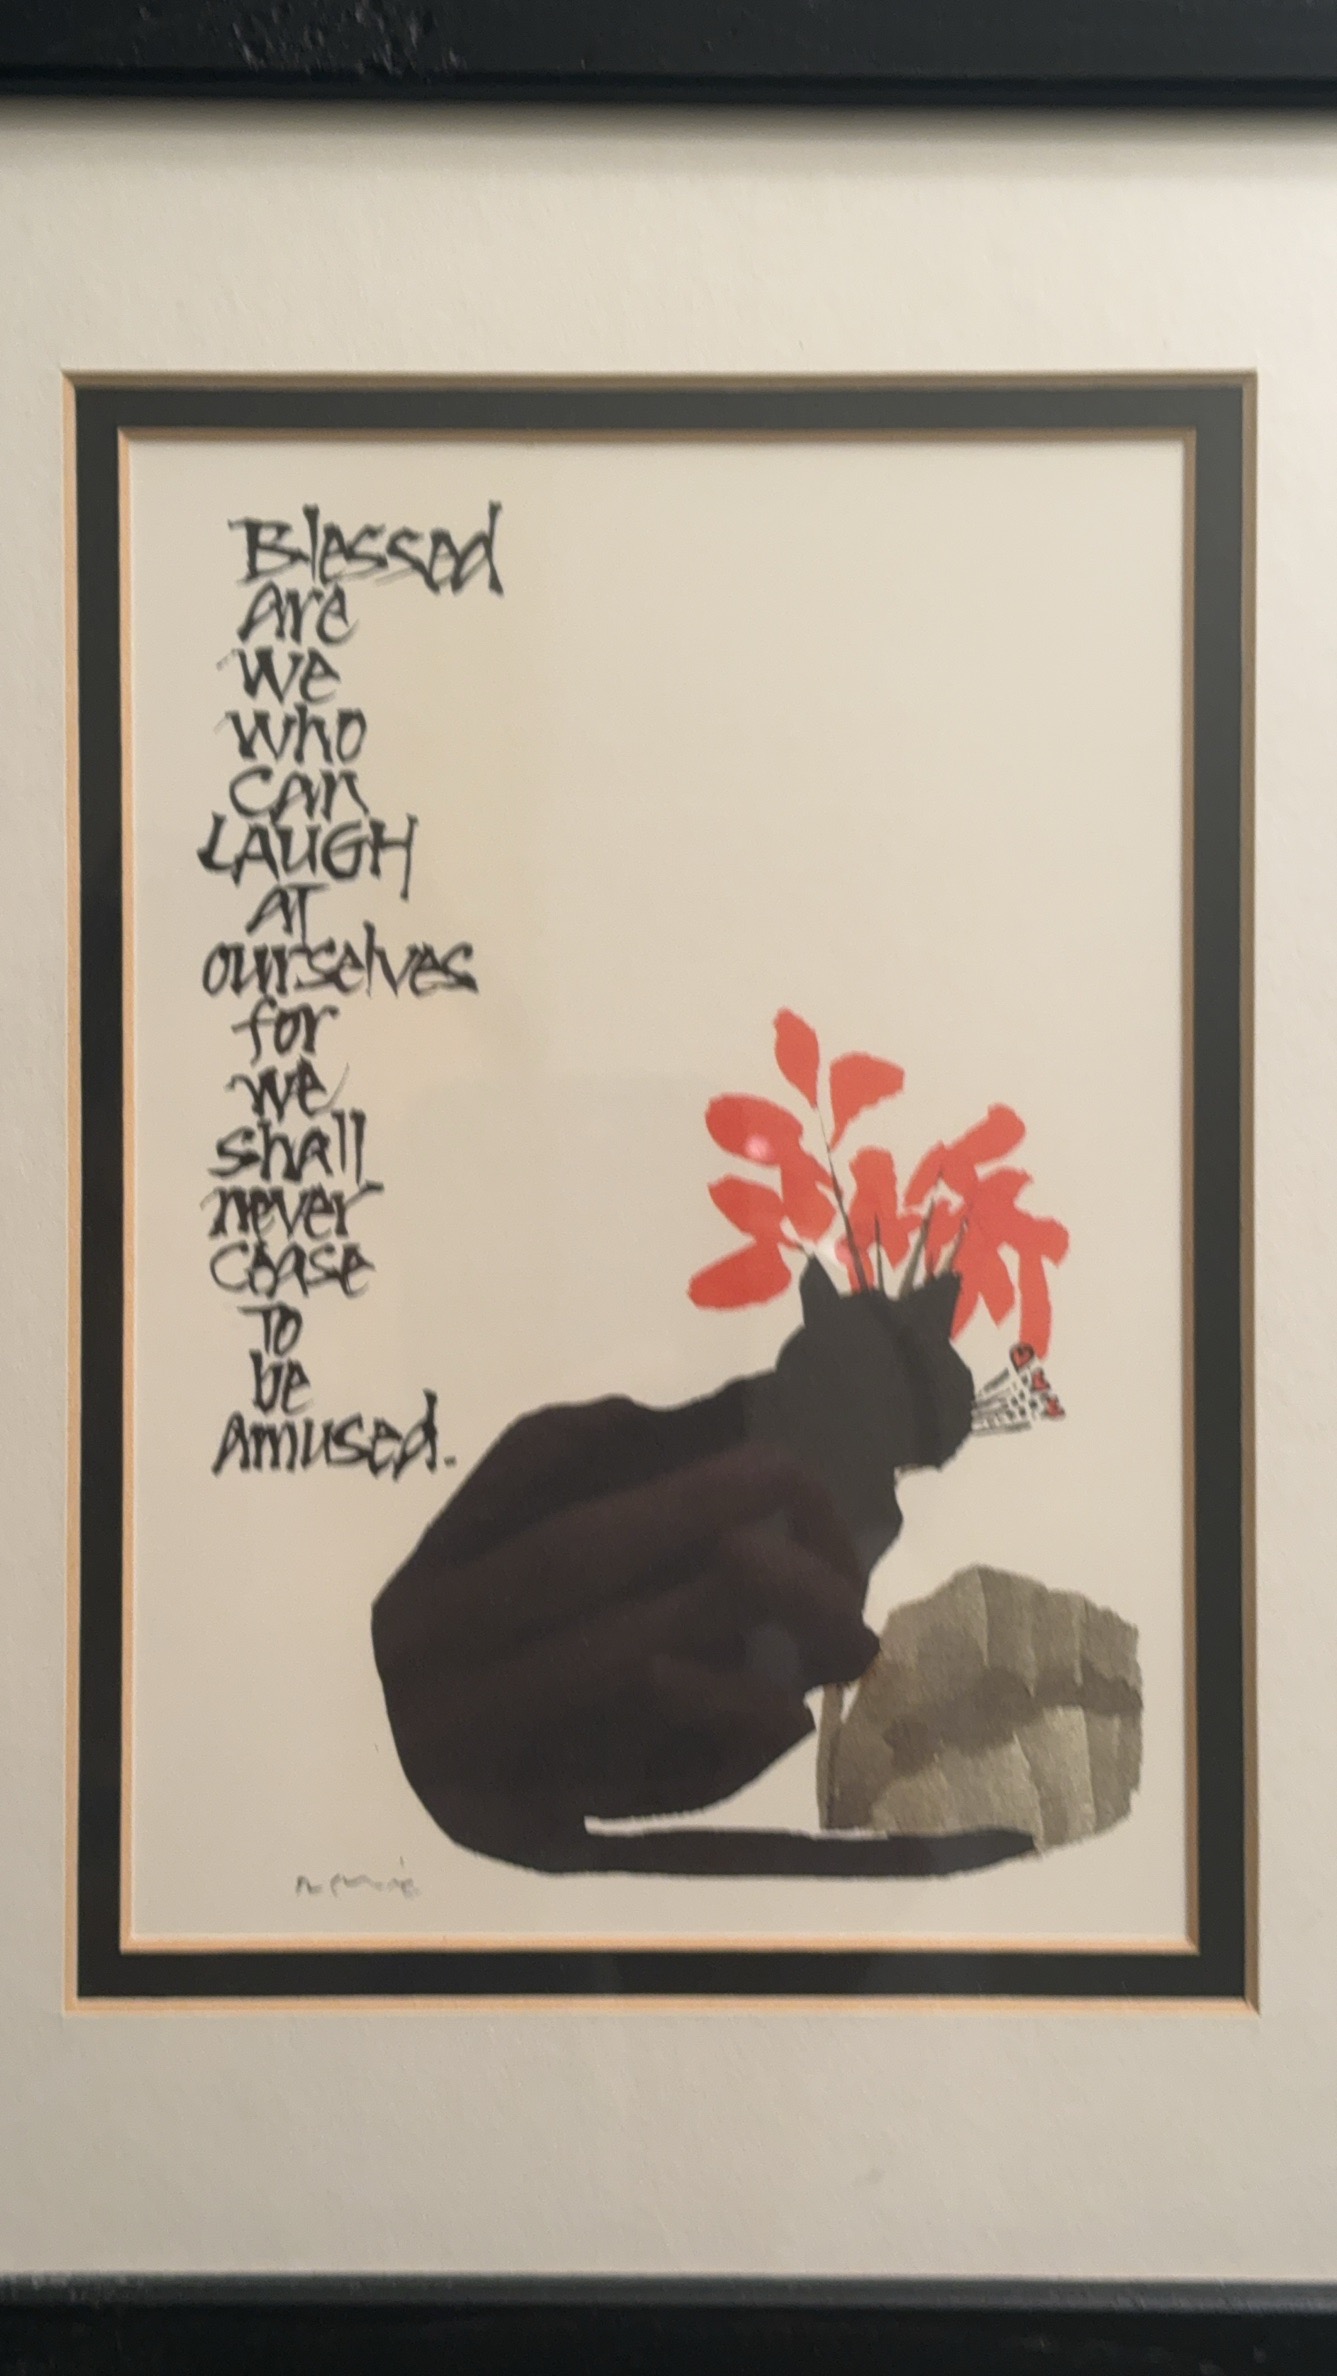 Blessed
are
we
who
can
LAUGH
AT
ourselves
for
we
shall
never
cease
To
be
Amused.